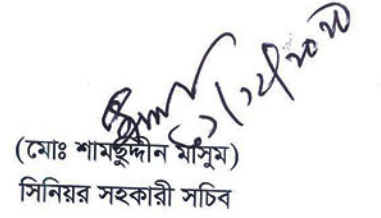 (মোঃ শামছুদ্দীন মাসুম)
সিনিয়র সহকারী সচিব